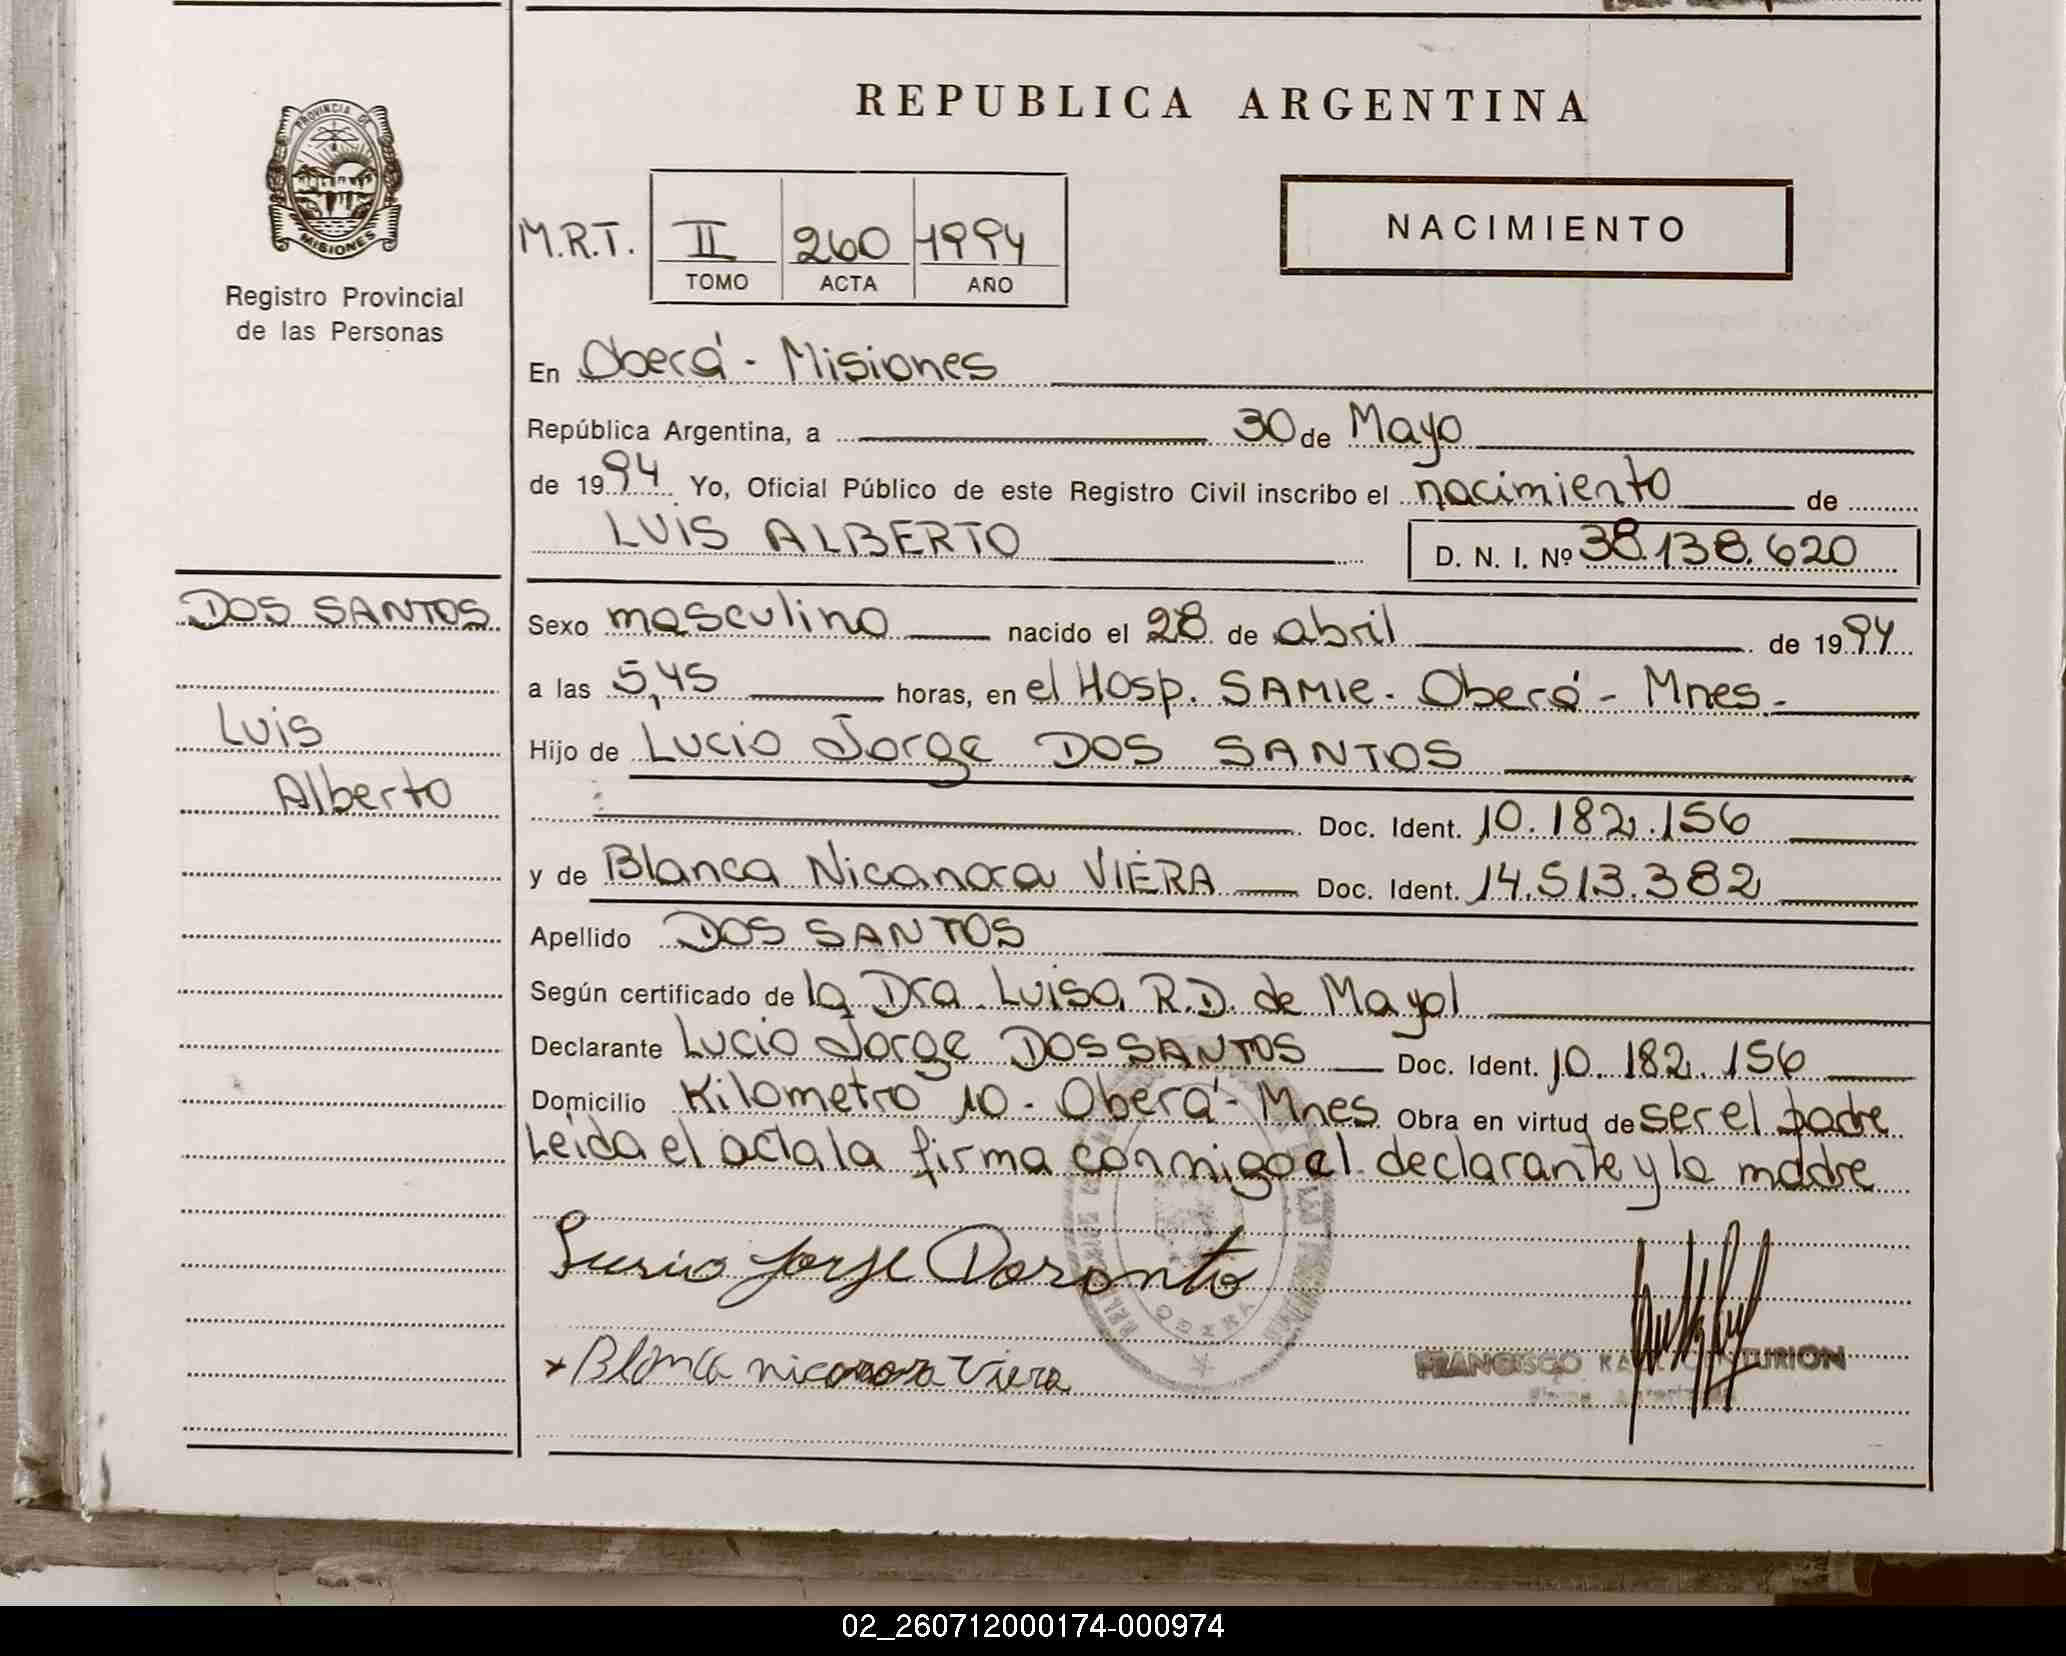 REPUBLICA ARGENTINA
PROVINCIA DE
MISIONES
Registro Provincial
de las Personas
M.R.T. II 260 1994
TOMO ACTA AÑO
NACIMIENTO
En Oberá - Misiones
República Argentina, a 30 de Mayo
de 1994 Yo, Oficial Público de este Registro Civil inscribo el nacimiento de
LUIS ALBERTO D. N. I. Nº 38.138.620
DOS SANTOS
Luis
Alberto
Sexo masculino nacido el 28 de abril de 1994
a las 5,45 horas, en el Hosp. SAMIC - Oberá - Mnes.-
Hijo de Lucio Jorge DOS SANTOS
Doc. Ident. 10.182.156
y de Blanca Nicanora VIERA Doc. Ident. 14.513.382
Apellido DOS SANTOS
Según certificado de la Dra. Luisa R.D. de Mayol
Declarante Lucio Jorge DOS SANTOS Doc. Ident. 10.182.156
Domicilio Kilometro 10 - Oberá - Mnes Obra en virtud de ser el padre
Leida el acta la firma conmigo el declarante y la madre
Blanca nicanora Viera
FRANCISCO
02_260712000174-000974